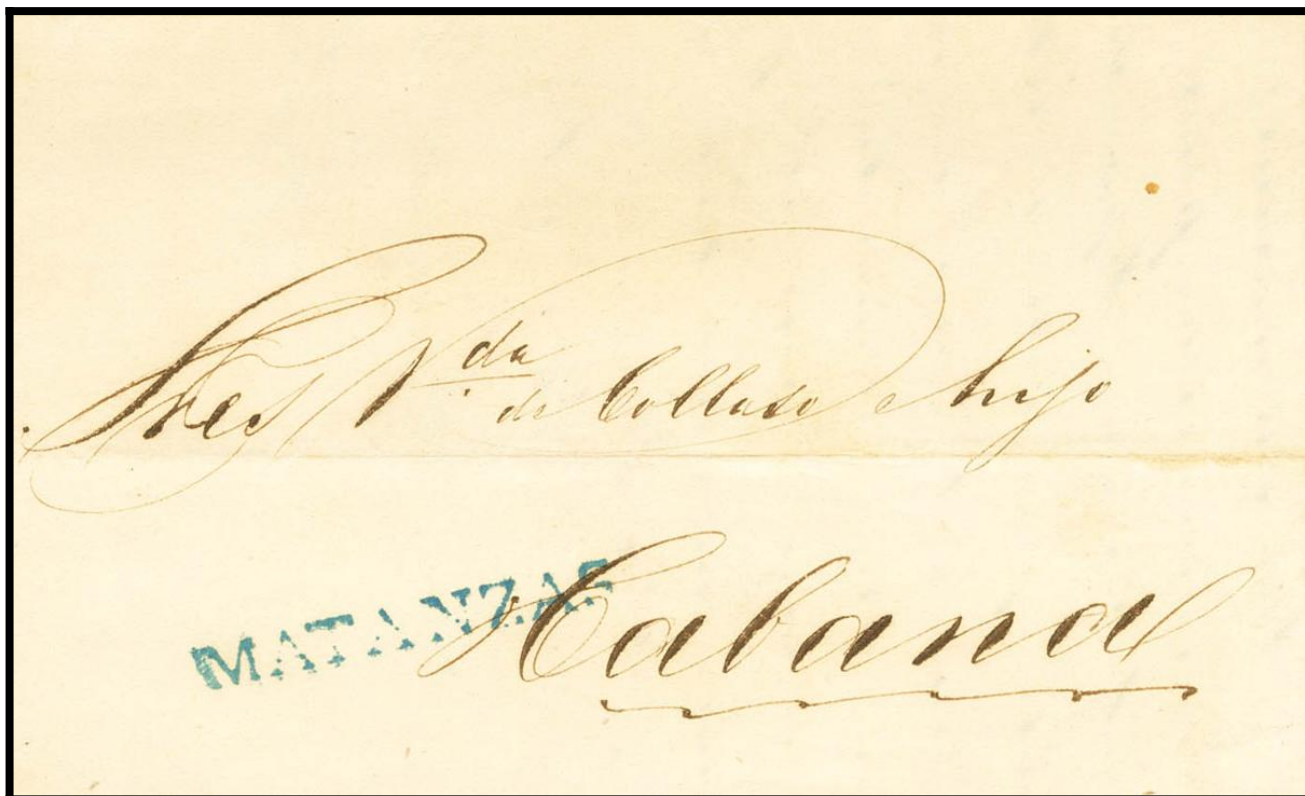 Sres V.da de Collaso e hijo
MATANZAS
Habana